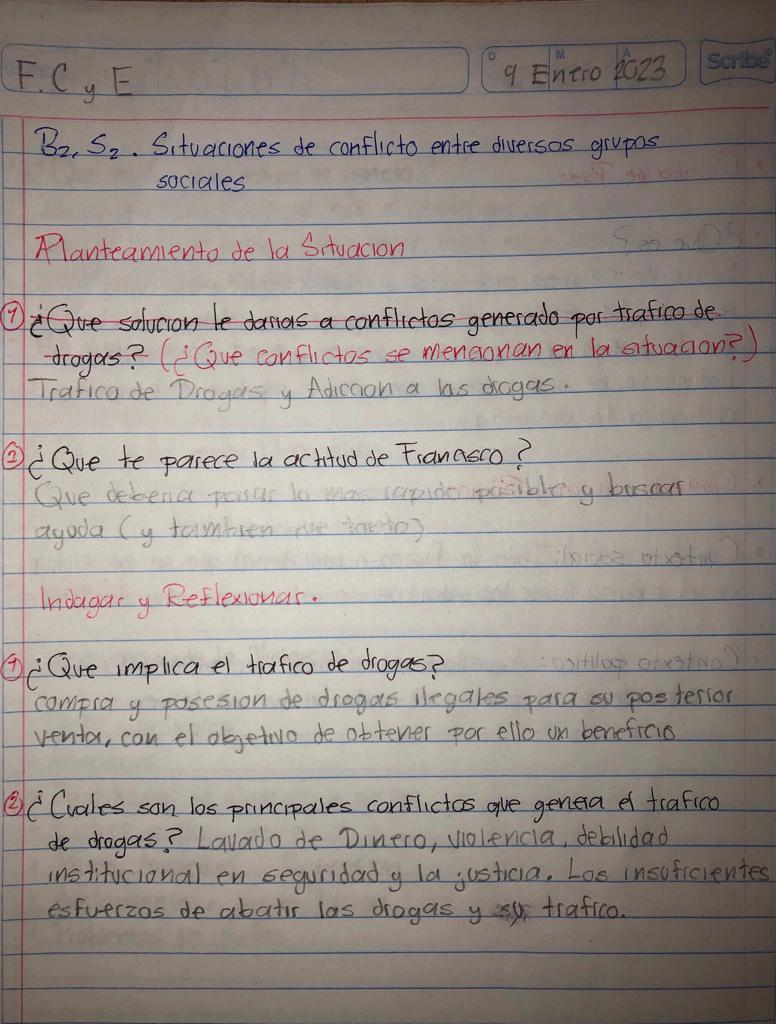 F.C y E
D M A
9 Enero 2023
Scribe
B2, S2. Situaciones de conflicto entre diversos grupos
sociales
Planteamiento de la Situacion
1 ¿Que solucion le darias a conflictos generado por trafico de
drogas? (¿Que conflictos se mencionan en la situacion?)
Trafico de Drogas y Adiccion a las drogas.
2 ¿Que te parece la actitud de Francisco?
Que deberia parar lo mas rapido posible y buscar
ayuda (y tambien que
Indagar y Reflexionar.
1 ¿Que implica el trafico de drogas?
compra y posesion de drogas ilegales para su posterior
venta, con el objetivo de obtener por ello un beneficio
2 ¿Cuales son los principales conflictos que genera el trafico
de drogas? Lavado de Dinero, violencia, debilidad
institucional en seguridad y la justicia. Los insuficientes
esfuerzos de abatir las drogas y su trafico.